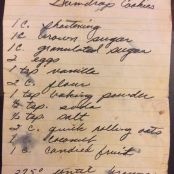 Gumdrop Cookies
1 C. shortening
1 C brown sugar
1 C. granulated sugar
2 eggs
1 tsp vanilla
2 C. flour
1 tsp baking powder
½ tsp. soda
½ tsp. salt
2 C. quick rolling oats
1 C coconut
1 C. candied fruit
375° until brown